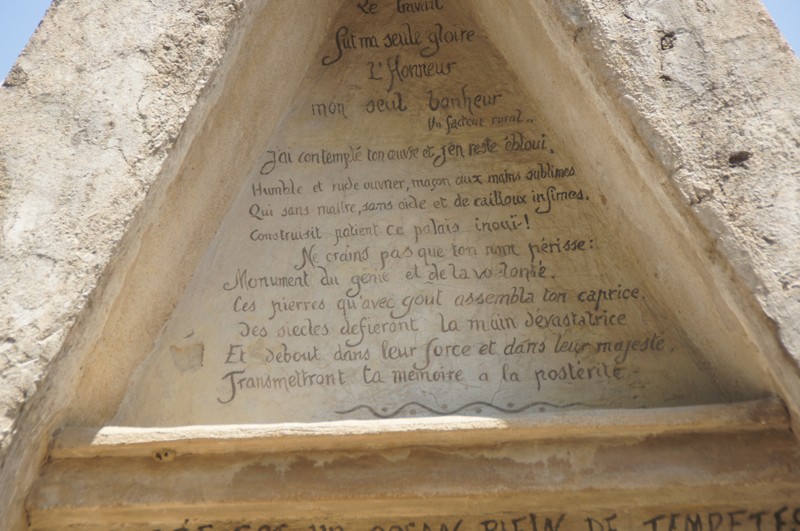 Le travail
fut ma seule gloire
L'Honneur
mon seul bonheur
Un facteur rural..
J'ai contemplé ton œuvre et j'en reste ébloui.
Humble et rude ouvrier, maçon aux mains sublimes
Qui sans maître, sans aide et de cailloux infimes.
Construisit patient ce palais inouï!
Ne crains pas que ton nom périsse:
Monument du génie et de la volonté.
Ces pierres qu'avec goût assembla ton caprice.
Des siecles défieront la main dévastatrice
Et debout dans leur force et dans leur majesté.
Transmettront ta mémoire a la postérité
UN OCEAN PLEIN DE TEMPETES